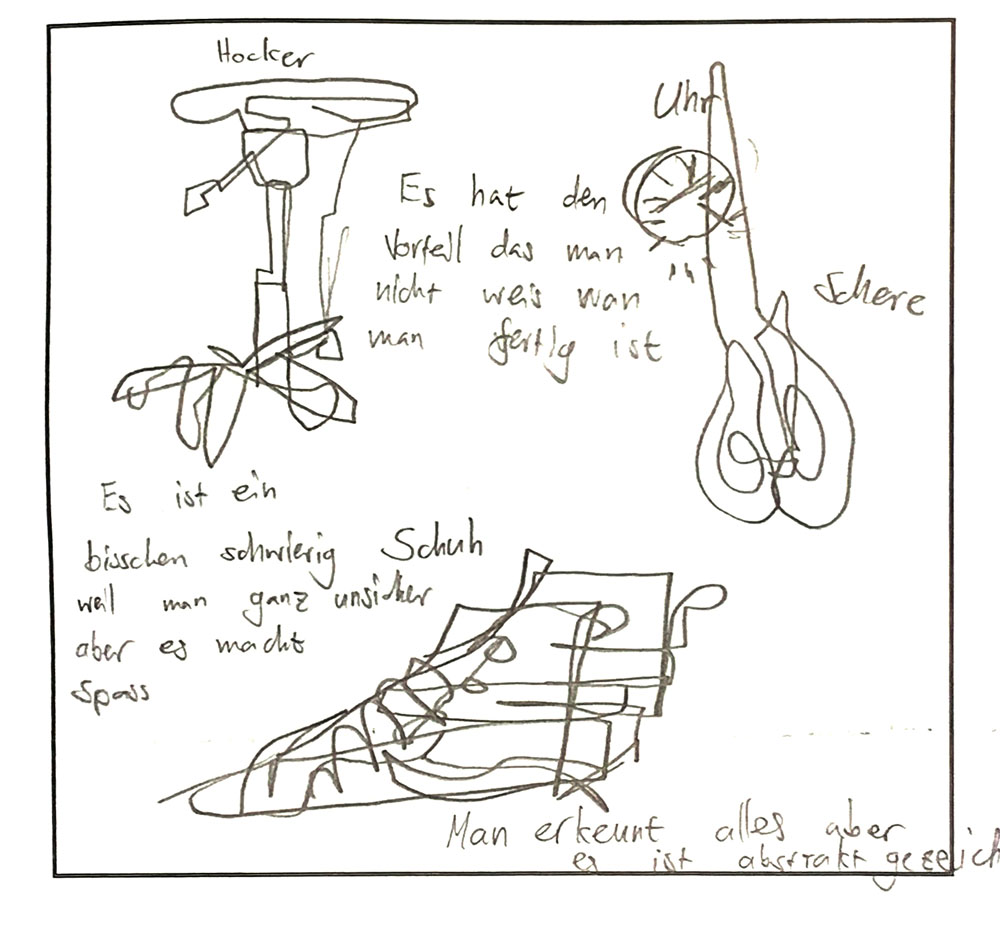 Hocker
Uhr
Es hat den
Vorteil das man
nicht weis wan
man fertig ist
Schere
Es ist ein
bisschen schwierig
weil man ganz unsicher
aber es macht
spass
Schuh
Man erkennt alles aber
es ist abstrakt gezeich